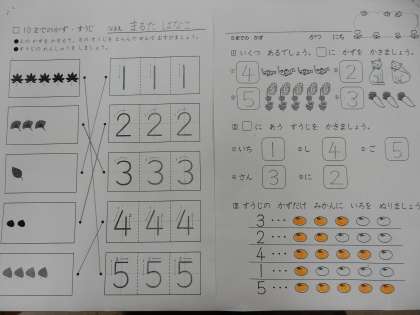 10までのかず・すうじ なまえ まるた はなこ
1 1 1
2 2 2
3 3 3
4 4 4
5 5 5
10までの かず がつ にち
いくつ あるでしょう。□に かずを かきましょう。
4 2
5 3
□に あう すうじを かきましょう。
いち 1 し 4 ご 5
さん 3 に 2
すうじの かずだけ みかんに いろを ぬりましょう
3 ・・・
2 ・・・
4 ・・・
1 ・・・
5 ・・・